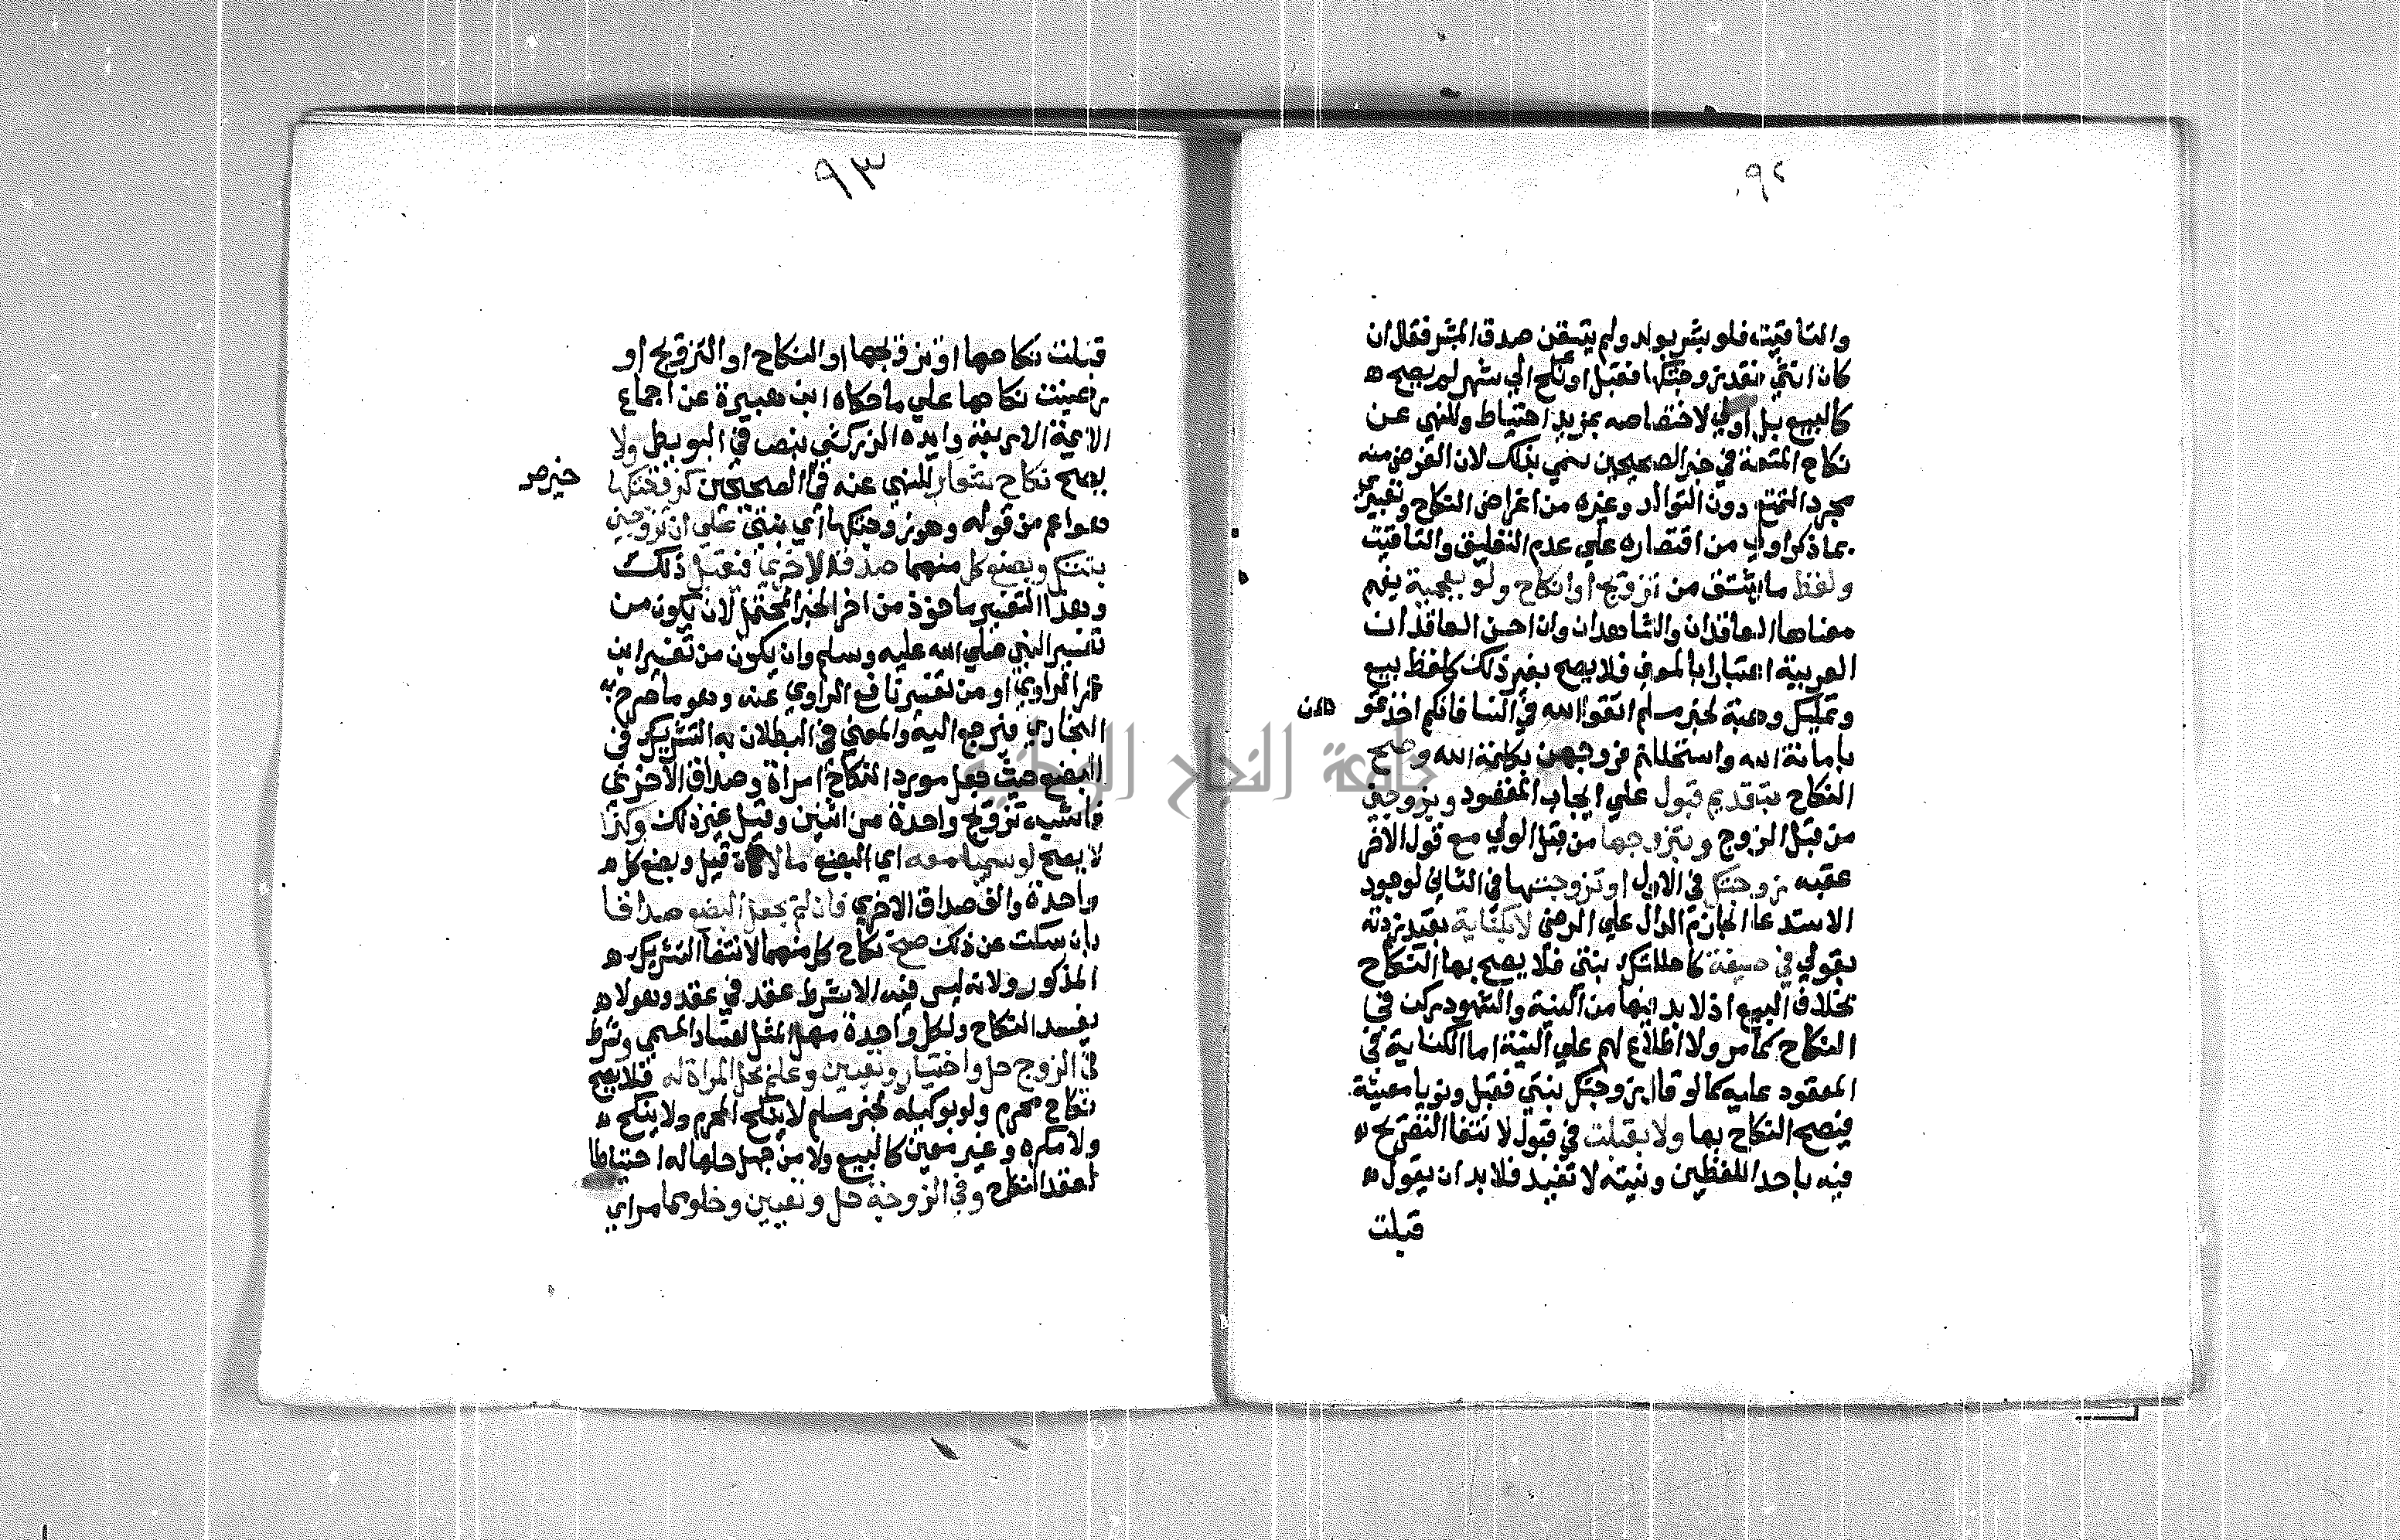 ٩٢
والتاقيت فلو بشر بولد ولم يتيقن صدق المبشر فقال ان
كان انثي فقد زوجتكها فقبل او نكح الي شهر لم يصح
كالبيع بل اولي لاختصاصه بمزيد احتياط وللنهي عن
نكاح المتعة في خبر الصحيحين سمي بذلك لان الغرض منه
مجرد التمتع دون التوالد وغيره من اغراض النكاح وتعبيري
بما ذكر اولي من اقتصاره علي عدم التعليق والتاقيت
ولفظ ما اشتق من تزويج او انكاح ولو بعجمية يفهم
معناها العاقدان والشاهدان وان احسن العاقدان
العربية اعتبارا بالمعني فلا يصح بغير ذلك كلفظ بيع
وتمليك وهبة لخبر مسلم اتقوا الله في النسا فانكم اخذتموهن
بامانة الله واستحللتم فروجهن بكلمة الله وصح
النكاح بتقديم قبول علي ايجاب المقصود وبزوجني
من قبل الزوج وبتزوجها من قبل الولي مع قول الاخر
عقبه زوجتك في الاول او تزوجتها في الثاني لوجود
الاستدعا الجازم الدال علي الرضي لا بكناية بقيد زدته
بقولي في صيغة كاحللتك بنتي فلا يصح بها النكاح
بخلاف البيع اذ لا بد فيها من النية والشهود ركن في
النكاح كما مر ولا اطلاع لهم علي النية اما الكناية في
المعقود عليه كما لو قال زوجتك بنتي فقبل ونويا معينة
فيصح النكاح بها ولا بقبلت في قبول لانتفا التصريح
فيه باحد اللفظين ونيته لا تفيد فلا بد ان يقول
قبلت
جامعة النجاح الوطنية
٩٣
قبلت نكاحها او تزويجها او النكاح او التزويج او
رضيت نكاحها علي ما حكاه ابن هبيرة عن اجماع
الايمة الاربعة وايده الزركشي بنص في البويطي ولا
يصح نكاح شغار للنهي عنه في الصحيحين كزوجتكها
خبر ص
هو اعم من قوله وهو زوجتكها اي بنتي علي ان تزوجني
بنتك وبضع كل منهما صداق الاخري فيقبل ذلك
وهذا التفسير ماخوذ من اخر الخبر المحتمل لان يكون من
تفسير النبي صلي الله عليه وسلم وان يكون من تفسير ابن
عمر الراوي او من تفسير نافع الراوي عنه وهو ما صرح به
البخاري فيرجع اليه والمعني في البطلان به التشريك في
البضع حيث جعل مورد النكاح امراة وصداق الاخري
فاشبه تزويج واحدة من اثنين وقيل غير ذلك وكذا
لا يصح لو سميا معه اي البضع مالا كان قيل وبضع كل
واحدة والف صداق الاخري فان لم يجعل البضع صداقا
بان سكت عن ذلك صح نكاح كل منهما لانتفا التشريك
المذكور ولانه ليس فيه الا شرط عقد في عقد وهو لا
يفسد النكاح ولكل واحدة مهر المثل لفساد المسمي وشرط
في الزوج حل واختيار وتعيين وعلم بحل المراة له فلا يصح
نكاح محرم ولو بوكيله لخبر مسلم لا ينكح المحرم ولا ينكح
ولا مكره وغير معين كالبيع ولا من جهل حلها له احتياطا
لعقد النكاح وفي الزوجة حل وتعيين وخلو مما مر اي